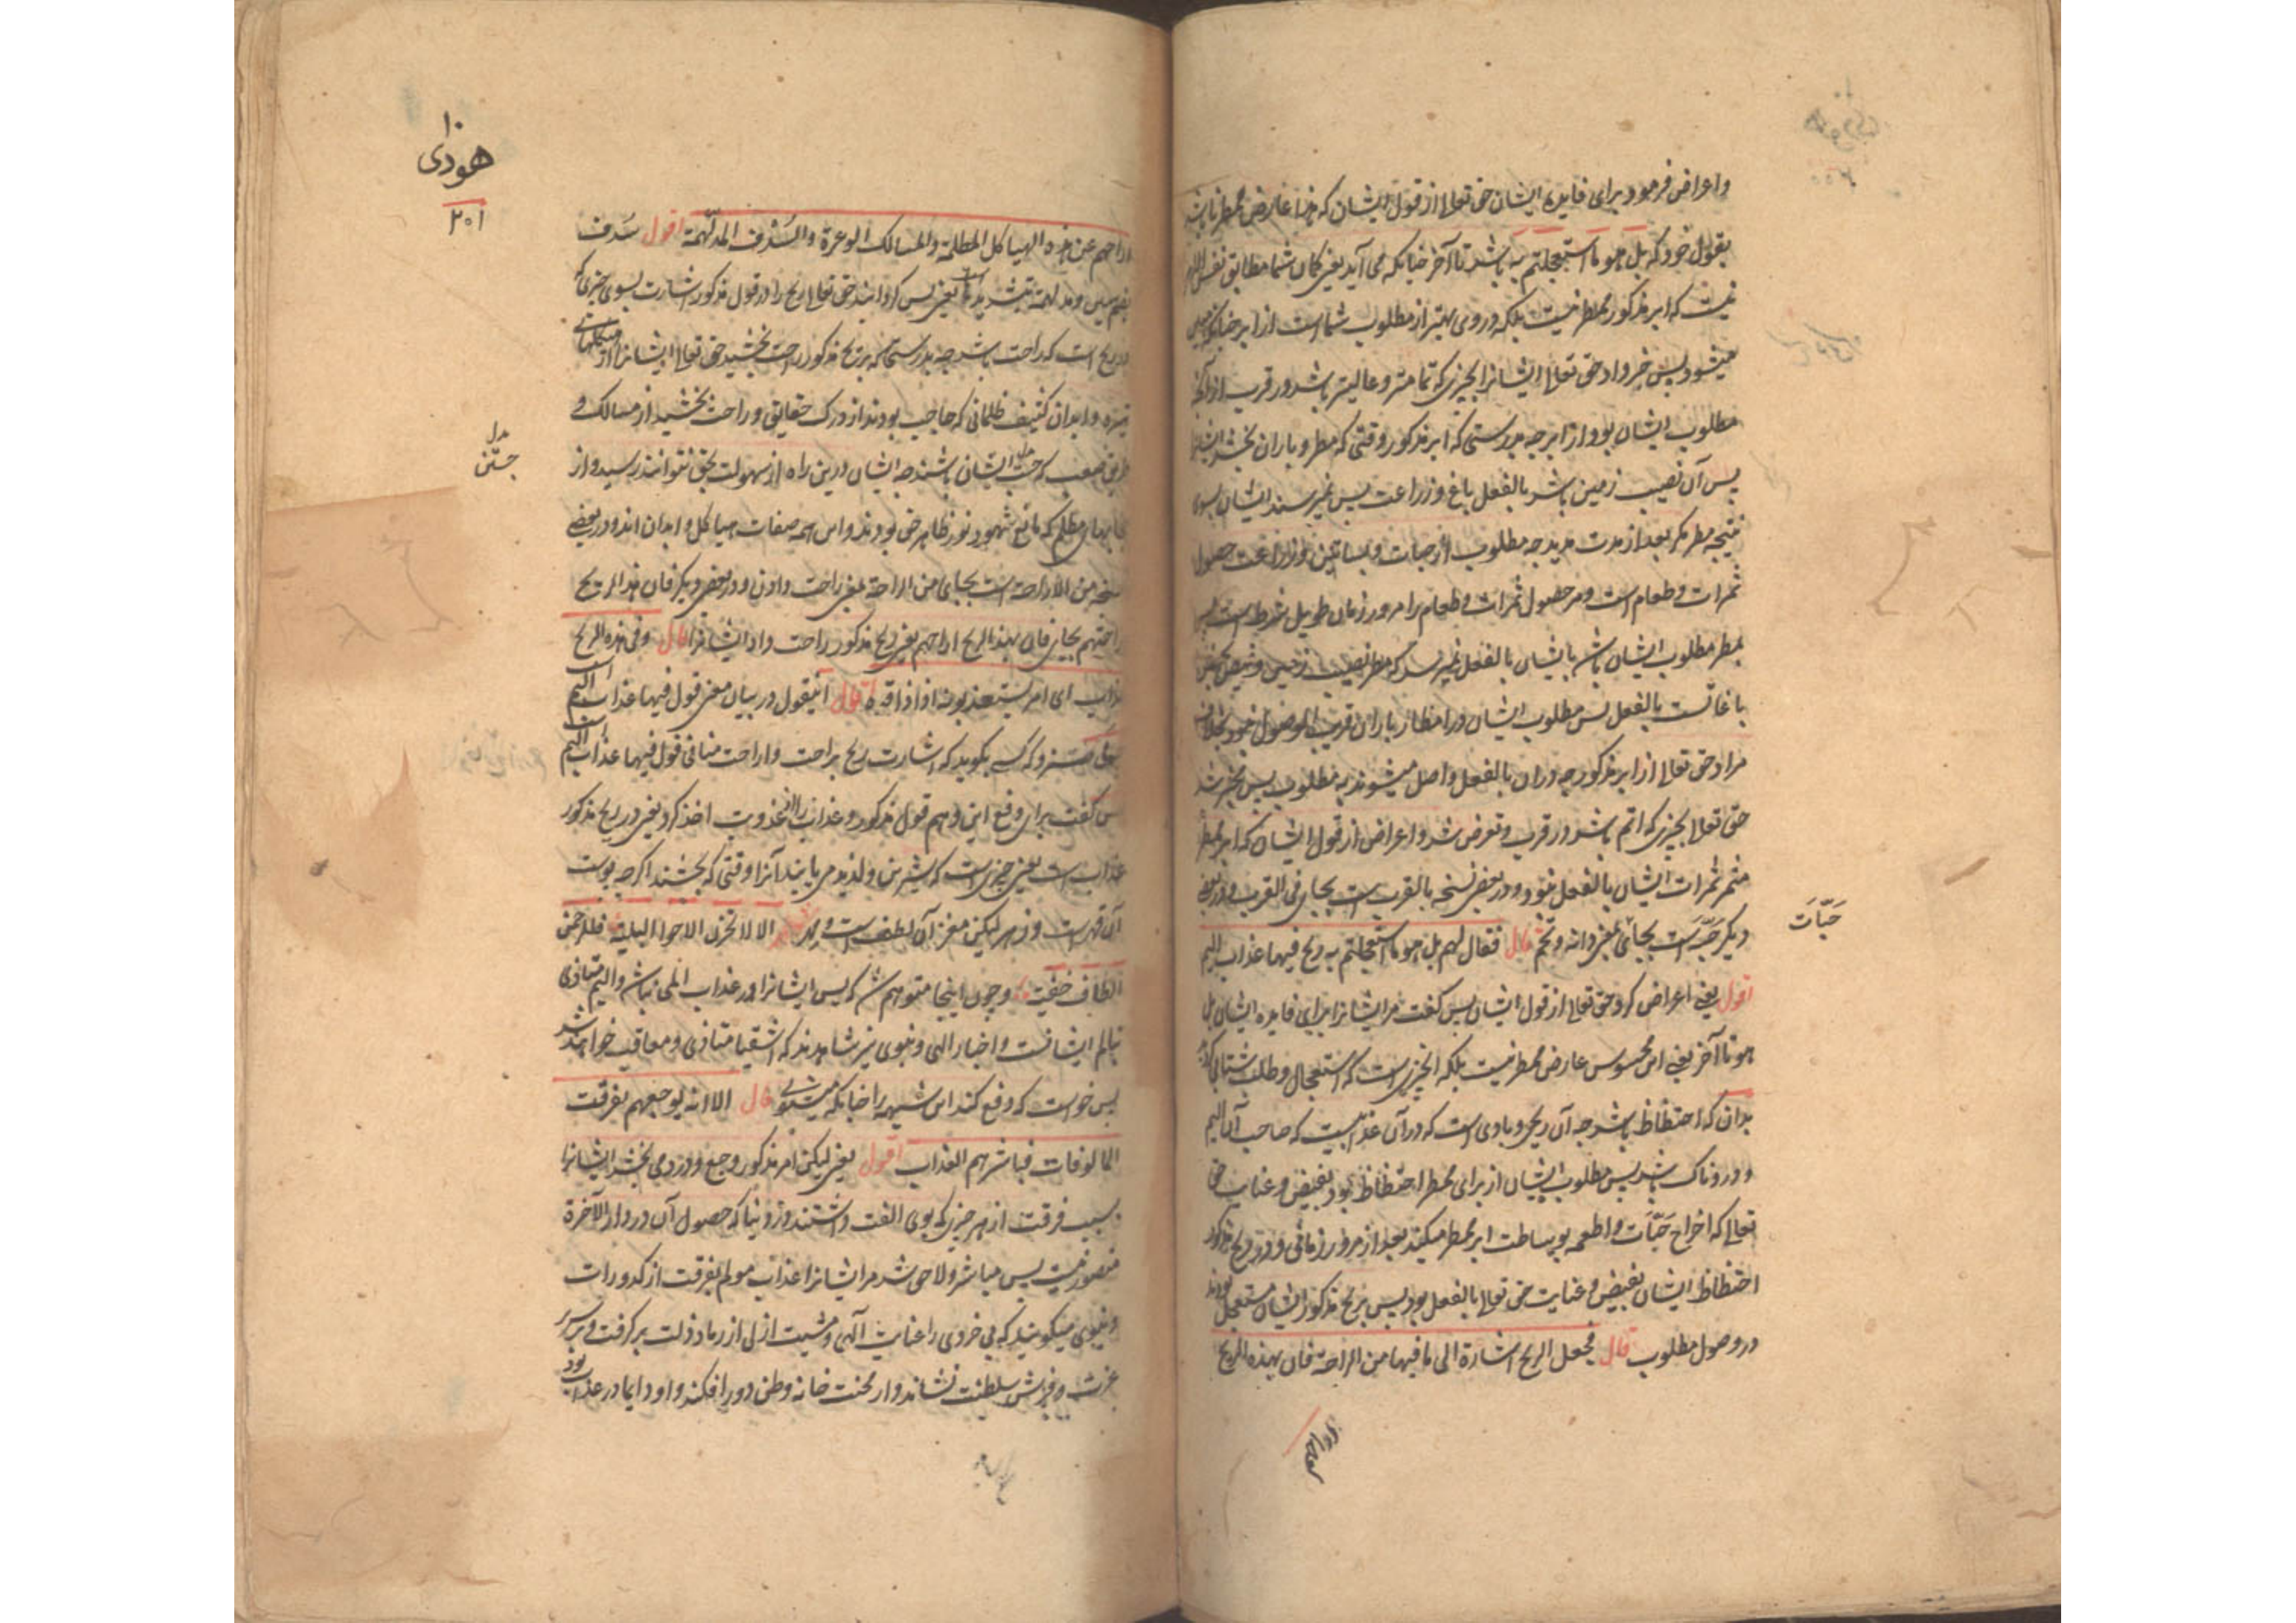 واعراض فرمود برای فایدهٔ ایشان حق تعالی از قول ایشان که هذا عارض ممطرنا باشد
بقول خود که بل هو ما استعجلتم به باشد تا آخر چنانکه می آید یعنی گمان شما مطابق نفس الامر
نیست که ابر مذکور ممطر نیست بلکه در وی بهتر از مطلوب شما است از ابر چنانکه معلوم
میشود پس خبر داد حق تعالی ایشانرا بچیزی که تمامتر و عالیتر باشد در قرب از آنکه
مطلوب ایشان بود از ابر چه بدرستی که ابر مذکور وقتی که مطر و باران بخشد ایشانرا
پس آن نصیب زمین باشد بالفعل باغ و زراعت پس نمیرسند ایشان بسوی
نتیجه مطر مگر بعد از مدت مدید چه مطلوب از حبات و بساتین و زراعت حصول
ثمرات و طعام است و مر حصول ثمرات و طعام را مرور زمان طویل شرط است پس
بمطر مطلوب ایشان بایشان بالفعل نمیرسد که مطر نصیب زمین
بالفعل پس مطلوب ایشان در امطار باران قریب الوصول نبود بخلاف
مراد حق تعالی از ابر مذکور چه دران بالفعل واصل میشوند به مطلوب پس مخبر شد
حق تعالی بچیزی که اتم باشد در قرب و تعرض شد و اعراض از قول ایشان که ابر ممطر
مثمر ثمرات ایشان بالفعل نبود و در بعض نسخه بالقرب است بجای فی القرب و در بعضی
دیگر حبّه است بجای یعنی دانه و تخم قال فقال لهم بل هو ما استعجلتم به ریح فیها عذاب الیم
حَبّات
اقول یعنی اعراض کرد حق تعالی از قول ایشان پس گفت مر ایشانرا برای فایده ایشان بل
هو تا آخر یعنی این محسوس عارض ممطر نیست بلکه آنچیزی است که استعجال و طلب شتابی کردید
بدان که احتظاظ باشد چه آن ریحی و بادی است که در آن عذابیست که صاحب آن الیم
و دردناک باشد پس مطلوب ایشان از برای ممطر احتظاظ بود بفیض و عنایت حق
تعالی که اخراج حبّات و اطعمه بوساطت ابر ممطر میکند بعد از مرور زمانی و در ریح مذکور
احتظاظ ایشان بفیض و عنایت حق تعالی بالفعل بود پس بریح مذکور ایشان مستعجل بودند
در وصول مطلوب قال فجعل الریح اشارة الی ما فیها من الراحة فان بهذه الریح
هودی
۲۰۱
اراحهم عن هذه الهیاکل المظلمة والمسالک الوعرة والسُّدف المدلهّمة اقول سُدف
بضم سین و مدلهمة بتشدید است یعنی پس گردانید حق تعالی ریح را در قول مذکور اشارت بسوی چیزی که
در ریح است که راحت باشد چه بدرستی که بریح مذکور راحت بخشید حق تعالی ایشانرا از هیکلهای
تیره و ابدان کثیف ظلمانی که حاجب بودند از درک حقایق و راحت بخشید از مسالک و
طریق صعب که ایشان باشند چه ایشان درین راه از سهولت بحق نتوانند رسید و از
حجابهای مظلم که مانع شهود نور ظاهر حق بودند و این همه صفات هیاکل و ابدان اند و در بعضی
نسخه من الاراحة است بجای من الراحة یعنی راحت دادن و در بعض دیگر فان هذا الریح
اراحتهم بجای فان بهذه الریح اراحهم یعنی ریح مذکور راحت داد ایشانرا قال وفی هذه الریح
عذاب ای امر یستعذبونه اذا ذاقوه اقول اینقول در بیان معنی قول فیها عذاب الیم است
کسی بگوید که اشارت ریح براحت و اراحت منافی قول فیها عذاب الیم است
پس گفت برای دفع این وهم قول مذکور و عذاب را از عذوبت اخذ کرد یعنی در ریح مذکور
عذاب است یعنی چیزی است که شیرین و لذیذ می یابند آنرا وقتی که بچشند اگرچه پوست
آن قهر است و زهر لیکن مغز آن لطف است الا لا تحزن الاحوال البلیة فللرحمن
الطاف خفیة و چون اینجا متوهم شد که پس ایشانرا در عذاب المی نباشد والیم متاذی
تالم ایشانست و اخبار الهی و نبوی نیز شاهدند که اشقیا متاذی و معاقب خواهند شد
پس خواست که دفع کند این شبهه را چنانکه میگوید قال الا انه یوجعهم بفرقت
المالوفات فباشرهم العذاب اقول یعنی لیکن امر مذکور وجع و درد می بخشد ایشانرا
بسبب فرقت از هر چیزی که بوی الفت داشتند در دنیا که حصول آن در دار الآخرة
متصور نیست پس مباشر و لاحق شد مر ایشانرا عذاب مولم بفرقت از کدورات
دنیوی میگویند که بی خردی را عنایت الهی و مشیت ازلی از رماد ذلت برگرفت و بر سریر
عزت و فرش سلطنت نشاند و از محنت خانه وطن دور افکند و او دایما در عذاب بود